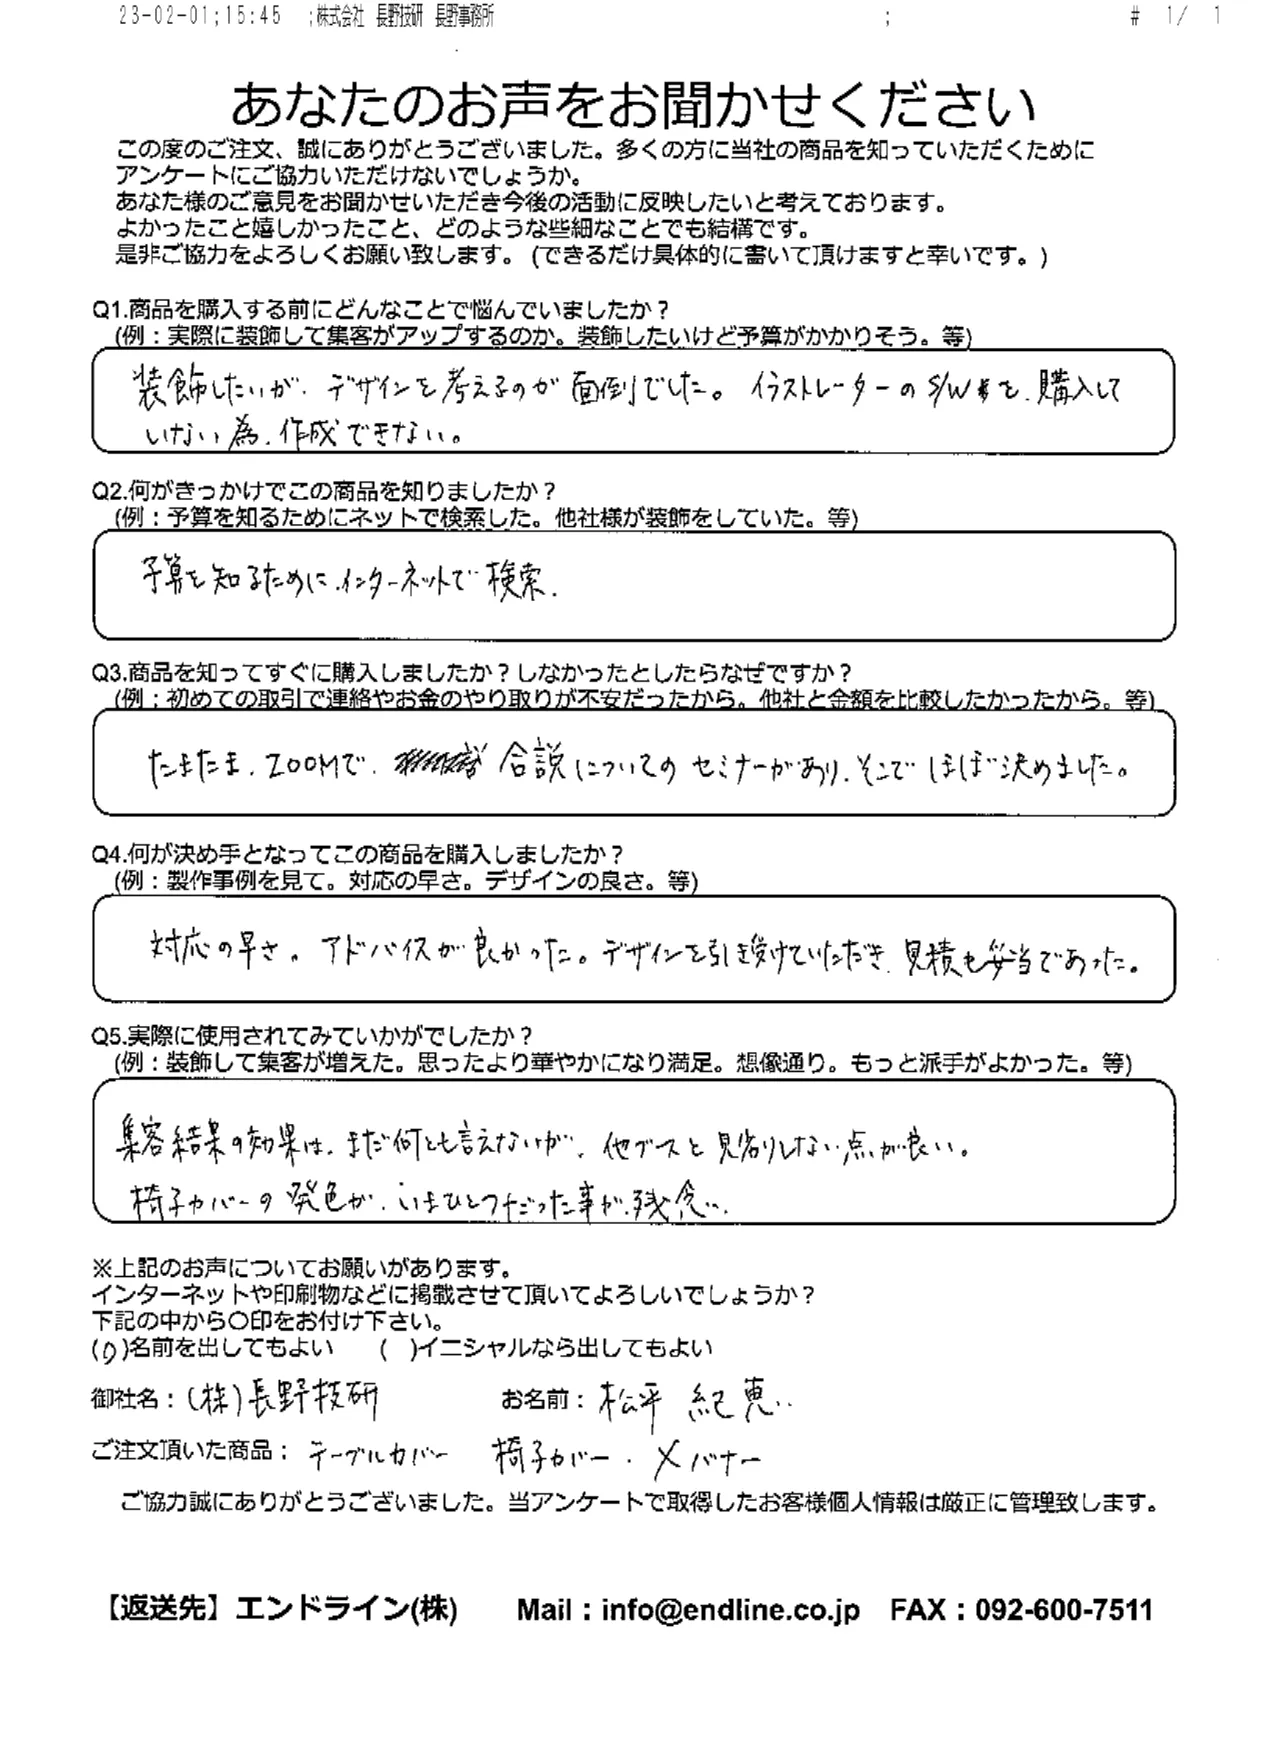 23-02-01;15:45 ;株式会社 長野技研 長野事務所 ; # 1/ 1
あなたのお声をお聞かせください
この度のご注文、誠にありがとうございました。多くの方に当社の商品を知っていただくために
アンケートにご協力いただけないでしょうか。
あなた様のご意見をお聞かせいただき今後の活動に反映したいと考えております。
よかったこと嬉しかったこと、どのような些細なことでも結構です。
是非ご協力をよろしくお願い致します。(できるだけ具体的に書いて頂けますと幸いです。)
Q1.商品を購入する前にどんなことで悩んでいましたか？
(例：実際に装飾して集客がアップするのか。装飾したいけど予算がかかりそう。等)
装飾したいが、デザインを考えるのが面倒でした。イラストレーターのS/Wを、購入して
いない為、作成できない。
Q2.何がきっかけでこの商品を知りましたか？
(例：予算を知るためにネットで検索した。他社様が装飾をしていた。等)
予算を知るために、インターネットで検索.
Q3.商品を知ってすぐに購入しましたか？しなかったとしたらなぜですか？
(例：初めての取引で連絡やお金のやり取りが不安だったから。他社と金額を比較したかったから。等)
たまたま、ZOOMで、合説についてのセミナーがあり、そこでほぼ決めました。
Q4.何が決め手となってこの商品を購入しましたか？
(例：製作事例を見て。対応の早さ。デザインの良さ。等)
対応の早さ。アドバイスが良かった。デザインを引き受けていただき、見積も妥当であった。
Q5.実際に使用されてみていかがでしたか？
(例：装飾して集客が増えた。思ったより華やかになり満足。想像通り。もっと派手がよかった。等)
集客結果の効果は、まだ何とも言えないが、他ブースと見劣りしない点が良い。
椅子カバーの発色が、いまひとつだった事が、残念、
※上記のお声についてお願いがあります。
インターネットや印刷物などに掲載させて頂いてよろしいでしょうか？
下記の中から○印をお付け下さい。
(○)名前を出してもよい ( )イニシャルなら出してもよい
御社名：(株)長野技研 お名前：松平 紀恵
ご注文頂いた商品：テーブルカバー 椅子カバー、Xバナー
ご協力誠にありがとうございました。当アンケートで取得したお客様個人情報は厳正に管理致します。
【返送先】エンドライン(株) Mail：info@endline.co.jp FAX：092-600-7511